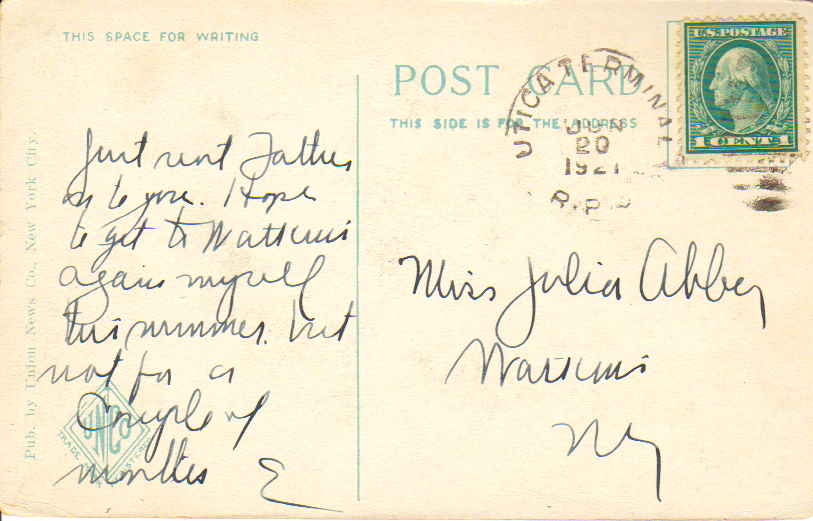 THIS SPACE FOR WRITING
POST CARD
THIS SIDE IS FOR THE ADDRESS
U.S. POSTAGE
1 CENT 1
UTICA TERMINAL
JUN
20
1921
R.P.O
Just sent Father
on to you. Hope
to get to
again myself
this summer. but
not for a
Couple of
months E
Miss Julia Abbey
NY
Pub. by Union News Co., New York City.
UNCO
TRADE